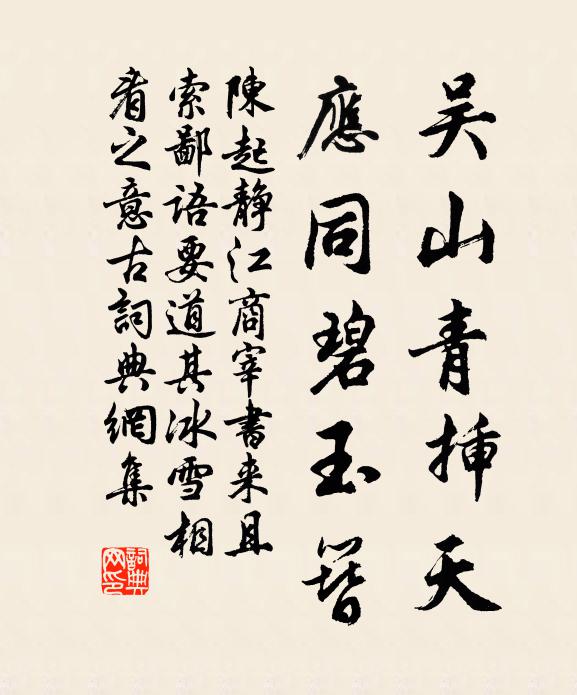 吴山青挿天
應同碧玉簪
陳起静江商宰書来且
索鄙语要道其冰雪相
看之意古詞典網集
詞典网印